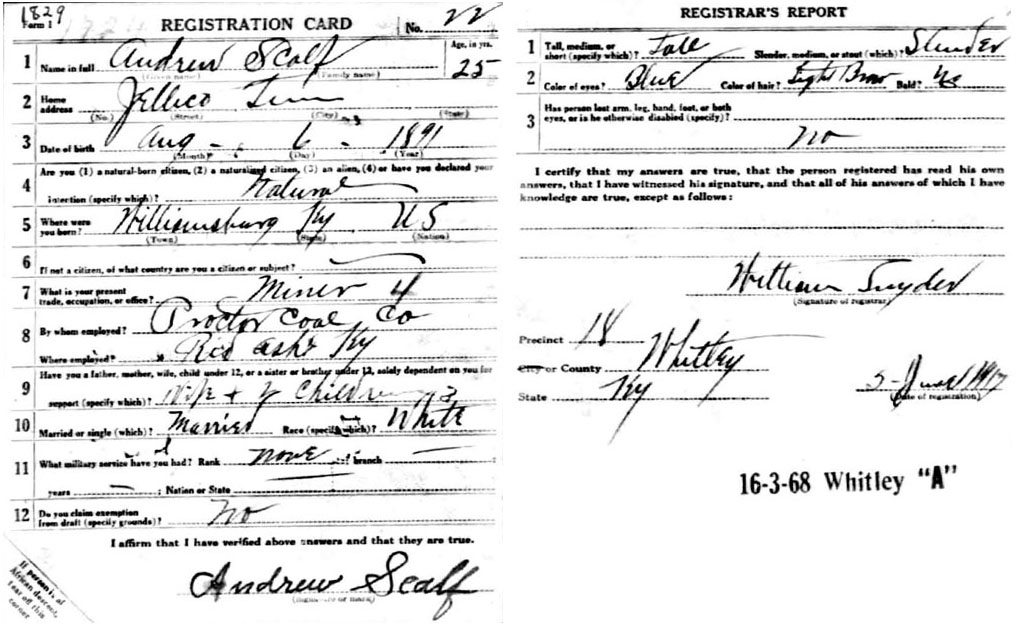 1829
Form 1
REGISTRATION CARD No. 22
1 Name in full Andrew Scalf Age, in yrs. 25
(Given name) (Family name)
2 Home address Jellico Tenn
(No.) (Street) (City) (State)
3 Date of birth Aug - 6 - 1891
(Month) (Day) (Year)
4 Are you (1) a natural-born citizen, (2) a naturalized citizen, (3) an alien, (4) or have you declared your
intention (specify which)? Natural
5 Where were you born? Williamsburg Ky US
(Town) (State) (Nation)
6 If not a citizen, of what country are you a citizen or subject?
7 What is your present trade, occupation, or office? Miner 4
8 By whom employed? Proctor Coal Co
Where employed? Red Ash Ky
9 Have you a father, mother, wife, child under 12, or a sister or brother under 12, solely dependent on you for
support (specify which)? Wife + Children 3
10 Married or single (which)? Married Race (specify which)? White
11 What military service have you had? Rank none ; branch
years ; Nation or State
12 Do you claim exemption from draft (specify grounds)? No
I affirm that I have verified above answers and that they are true.
Andrew Scalf
(Signature or mark)
If person is of
African descent,
tear off this
corner
REGISTRAR'S REPORT
1 Tall, medium, or short (specify which)? Tall Slender, medium, or stout (which)? Slender
2 Color of eyes? Blue Color of hair? Light Brow Bald? No
3 Has person lost arm, leg, hand, foot, or both
eyes, or is he otherwise disabled (specify)?
no
I certify that my answers are true, that the person registered has read his own
answers, that I have witnessed his signature, and that all of his answers of which I have
knowledge are true, except as follows:
William Snyder
(Signature of registrar)
Precinct 18
City or County Whitley
State Ky
5-June 1917
(Date of registration)
16-3-68 Whitley "A"